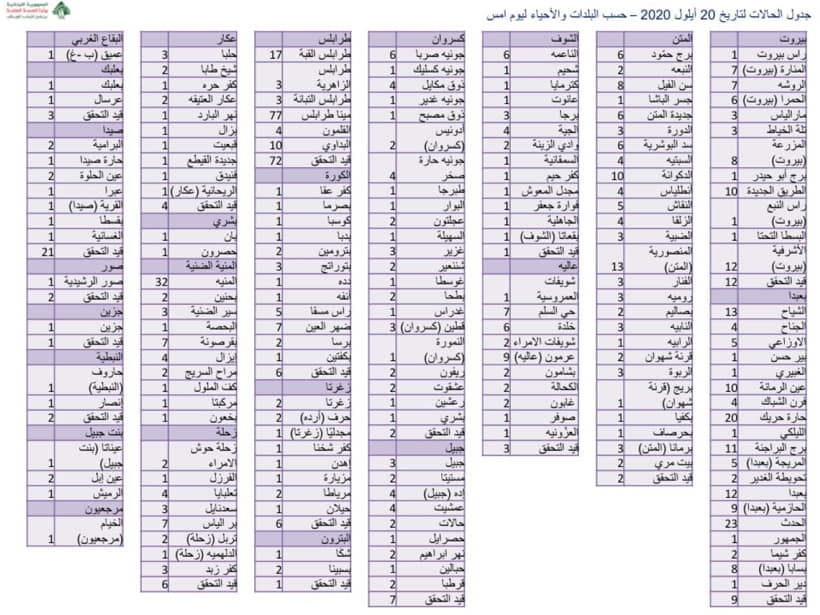 الجمهورية اللبنانية
وزارة الصحة العامة
جدول الحالات لتاريخ 20 أيلول 2020 – حسب البلدات والأحياء ليوم امس
بيروت
راس بيروت 1
المنارة (بيروت) 7
الروشه 7
الحمرا (بيروت) 6
مارالياس 3
تلة الخياط 3
المزرعة
(بيروت) 8
برج أبو حيدر 1
الطريق الجديدة 10
راس النبع
(بيروت) 1
البسطا التحتا 1
الأشرفية
(بيروت) 12
قيد التحقق 12
بعبدا
الشياح 13
الجناح 4
الاوزاعي 5
بير حسن 1
الغبيري 1
عين الرمانة 10
فرن الشباك 4
حارة حريك 20
الليلكي 1
برج البراجنة 11
المريجة (بعبدا) 5
تحويطة الغدير 2
بعبدا 12
الحازمية (بعبدا) 9
الحدث 23
الجمهور 1
كفر شيما 2
بسابا (بعبدا) 8
دير الحرف 1
قيد التحقق 9
المتن
برج حمّود 6
النبعه 2
سن الفيل 8
جسر الباشا 1
جديدة المتن 6
الدورة 3
سد البوشرية 6
السبتيه 4
الدكوانة 10
انطلياس 4
النقاش 5
الزلقا 4
الضبية 3
المنصورية
(المتن) 13
الفنار 3
روميه 3
بصاليم 2
النابيه 3
الرابيه 1
قرنة شهوان 2
الربوة 3
بريج (قرنة
شهوان) 1
بكفيا 1
بحرصاف 1
برمانا (المتن) 3
بيت مري 2
قيد التحقق 2
الشوف
الناعمه 6
شحيم 1
كترمايا 1
عانوت 1
برجا 3
الجية 4
وادي الزينة 2
السمقانية 1
كفر حيم 1
مجدل المعوش 1
فوارة جعفر 1
الجاهلية 1
بقعاتا (الشوف) 1
قيد التحقق 1
عاليه
شويفات
العمروسية 1
حي السلم 7
خلدة 6
شويفات الامراء 2
عرمون (عاليه) 9
بشامون 2
الكحالة 2
غابون 2
صوفر 1
العزّونيه 1
قيد التحقق 3
كسروان
جونيه صربا 6
جونيه كسليك 1
ذوق مكايل 4
جونيه غدير 1
ذوق مصبح 1
أدونيس
(كسروان) 2
جونيه حارة
صخر 4
طبرجا 1
البوار 1
عجلتون 2
السهيلة 1
غزير 3
شننعير 2
غوسطا 1
بطحا 2
غدراس 1
قطين (كسروان) 3
النمورة
(كسروان) 1
ريفون 2
عشقوت 2
رعشين 1
بشري 1
قيد التحقق 2
جبيل
جبيل 3
مستيتا 2
إده (جبيل) 4
عمشيت 4
حالات 2
حصرايل 1
نهر ابراهيم 2
حبالين 1
قرطبا 2
قيد التحقق 7
طرابلس
طرابلس القبة 17
طرابلس
الزاهرية 3
طرابلس التبانة 3
مينا طرابلس 77
القلمون 4
البداوي 10
قيد التحقق 72
الكورة
كفر عقا 1
بصرما 1
كوسبا 1
بدبا 1
بترومين 2
بتوراتج 3
دده 1
أنفه 1
راس مسقا 5
ضهر العين 7
برسا 2
بكفتين 1
قيد التحقق 6
زغرتا
زغرتا 2
حرف (أرده) 2
مجدليّا (زغرتا) 1
كفر شخنا 1
إهدن 1
مزيارة 1
مرياطا 2
حيلان 1
قيد التحقق 6
البترون
شكّا 1
بسبينا 2
قيد التحقق 1
عكار
حلبا 3
شيخ طابا 2
كفر حره 1
عكار العتيقه 2
نهر البارد 1
بزال 1
قبعيت 1
جديدة القيطع 1
فنيدق 1
الريحانية (عكار) 1
قيد التحقق 4
بشري
بان 1
حصرون 1
المنية الضنية
المنيه 32
بحنين 2
سير الضنية 3
البحصة 1
بقرصونة 7
إيزال 4
مراح السريج 2
كف الملول 1
مركبتا 1
بخعون 1
زحلة
زحلة حوش
الامراء 2
الفرزل 1
تعلبايا 4
سعدنايل 3
بر الياس 7
تربل (زحلة) 2
الدلهميه (زحلة) 1
كفر زبد 3
قيد التحقق 6
البقاع الغربي
عميق (ب -غ) 1
بعلبك
بعلبك 1
عرسال 1
قيد التحقق 3
صيدا
البرامية 2
حارة صيدا 1
عين الحلوة 2
عبرا 1
القرية (صيدا) 1
بقسطا 1
الغسانية 1
قيد التحقق 21
صور
صور الرشيدية 1
قيد التحقق 2
جزين
جزين 1
قيد التحقق 1
النبطية
حاروف
(النبطية) 1
إنصار 1
قيد التحقق 2
بنت جبيل
عيناتا (بنت
جبيل) 1
عين إبل 2
الرميش 1
مرجعيون
الخيام
(مرجعيون) 1